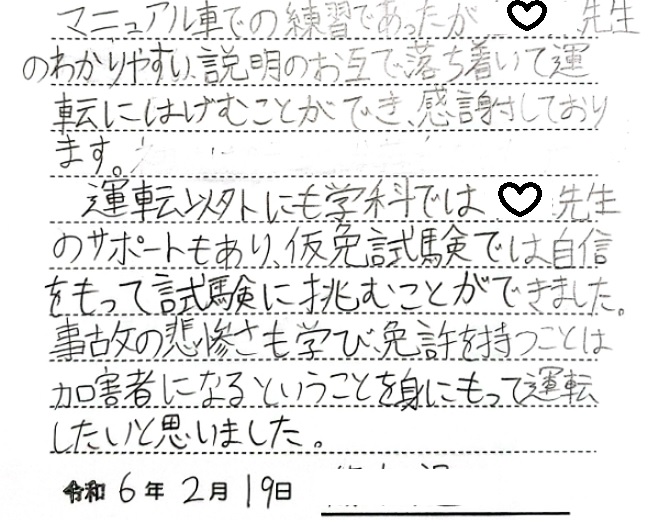 マニュアル車での練習であったが 先生
のわかりやすい説明のお互で落ち着いて運
転にはげむことができ、感謝しており
ます。
運転以外にも学科では 先生
のサポートもあり、仮免試験では自信
をもって試験に挑むことができました。
事故の悲惨さも学び免許を持つことは
加害者になるということを身にもって運転
したいと思いました。
令和 6年 2月 19日